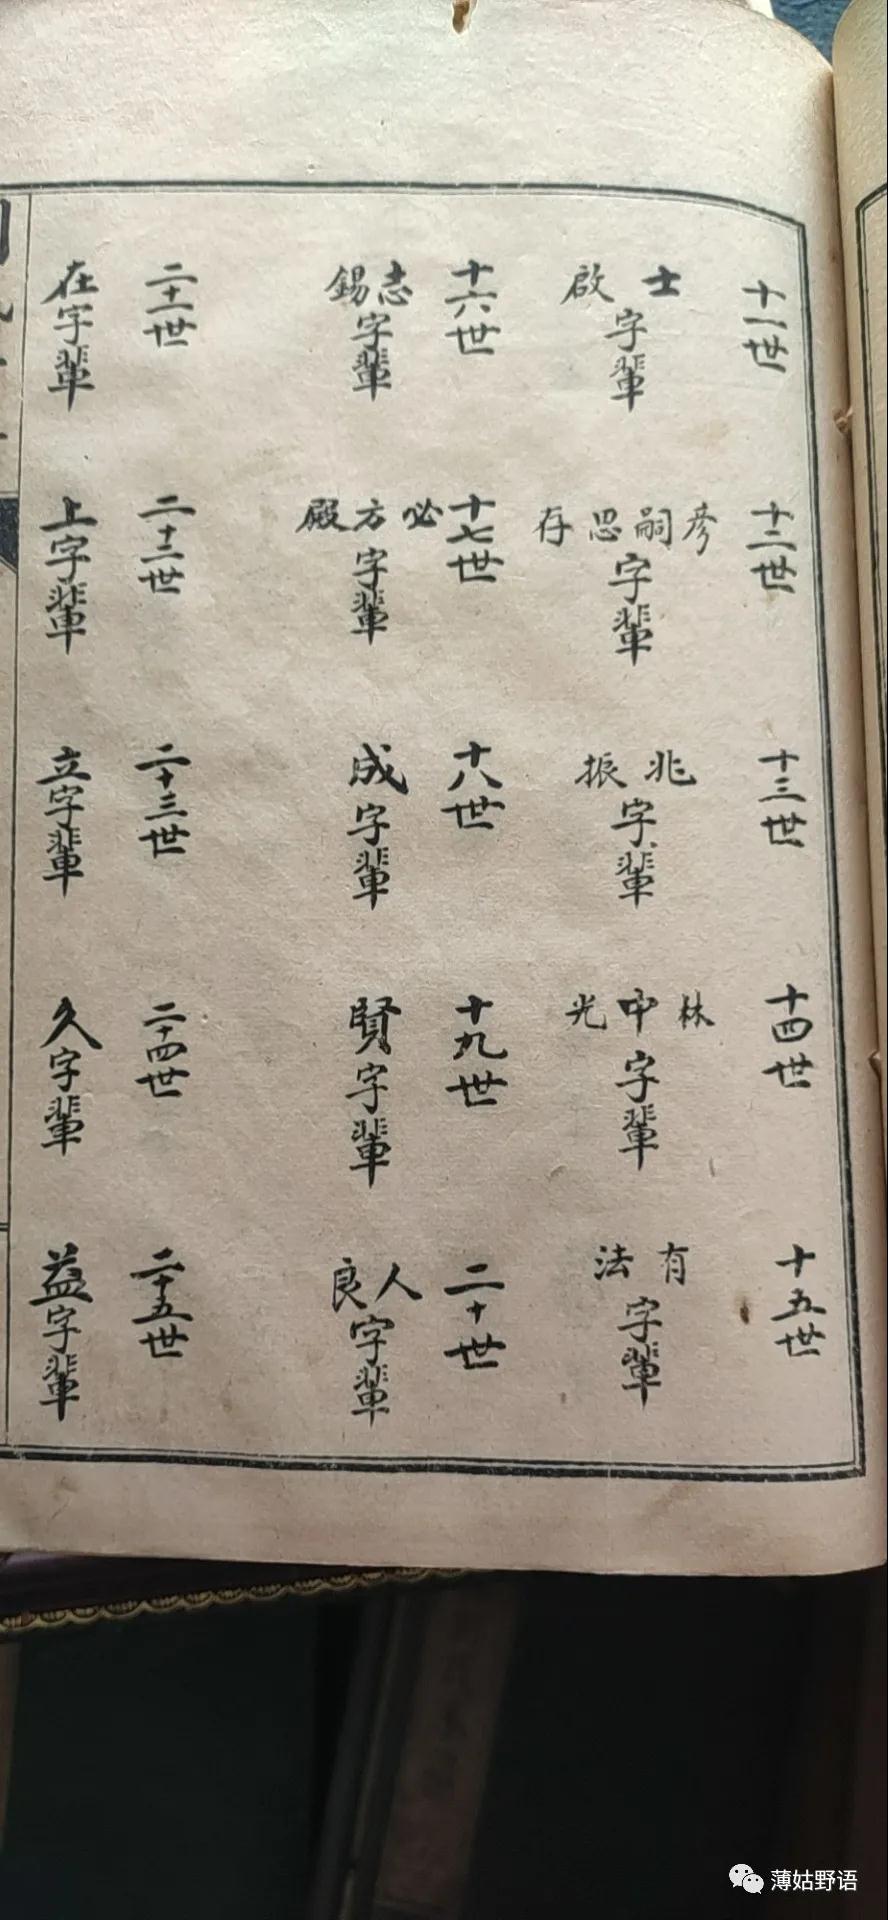 十一世
士啟字輩
十二世
彥嗣思存字輩
十三世
兆振字輩
十四世
林中光字輩
十五世
有法字輩
十六世
志錫字輩
十七世
必方殿字輩
十八世
成字輩
十九世
賢字輩
二十世
人良字輩
二十一世
在字輩
二十二世
上字輩
二十三世
立字輩
二十四世
久字輩
二十五世
益字輩
薄姑野语